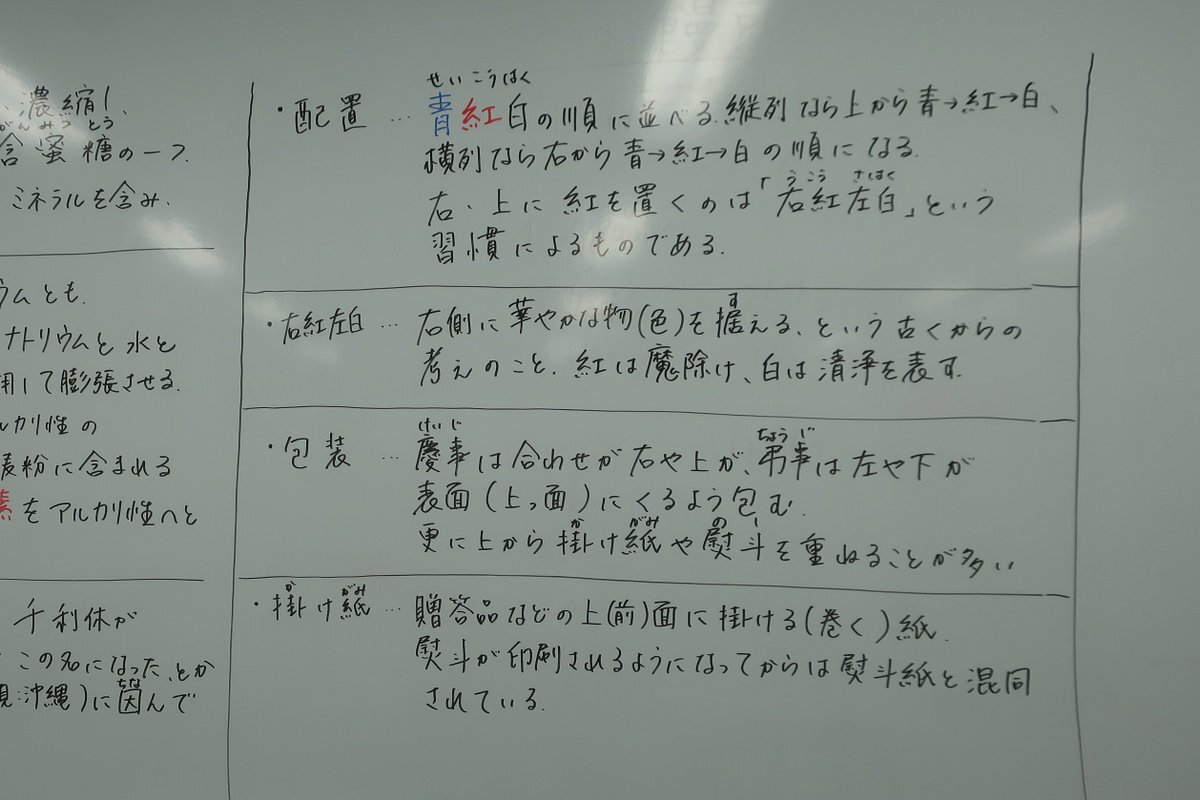 濃縮し、
がんみつとう
含蜜糖の一つ.
ミネラルを含み.
ウムとも.
ナトリウムと水と
用して膨張させる.
ルカリ性の
麦粉に含まれる
素をアルカリ性へと
千利休が
この名になった、とか
ちな
現:沖縄)に因んで
せいこうはく
・配置 … 青紅白の順に並べる.縦列なら上から青→紅→白、
横列なら右から青→紅→白の順になる.
うこうさはく
右・上に紅を置くのは「右紅左白」という
習慣によるものである.
す
・右紅左白 … 右側に華やかな物(色)を据える、という古くからの
考えのこと.紅は魔除け、白は清浄を表す.
けいじ ちょうじ
・包装 … 慶事は合わせが右や上が、弔事は左や下が
表面(上っ面)にくるよう包む.
か がみ のし
更に上から掛け紙や熨斗を重ねることが多い
か がみ
・掛け紙 … 贈答品などの上(前)面に掛ける(巻く)紙.
熨斗が印刷されるようになってからは熨斗紙と混同
されている.